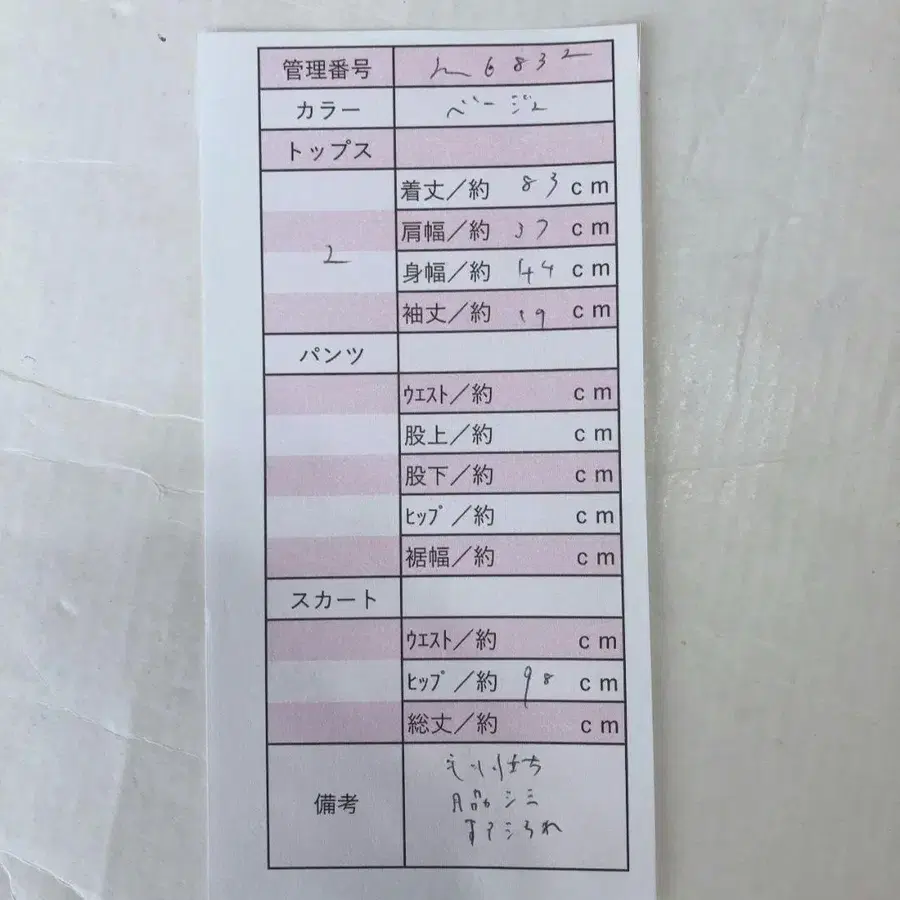 管理番号 h6832
カラー ベージュ
トップス
2
着丈／約 83 cm
肩幅／約 37 cm
身幅／約 44 cm
袖丈／約 19 cm
パンツ
ウエスト／約 cm
股上／約 cm
股下／約 cm
ヒップ／約 cm
裾幅／約 cm
スカート
ウエスト／約 cm
ヒップ／約 98 cm
総丈／約 cm
備考
シミ